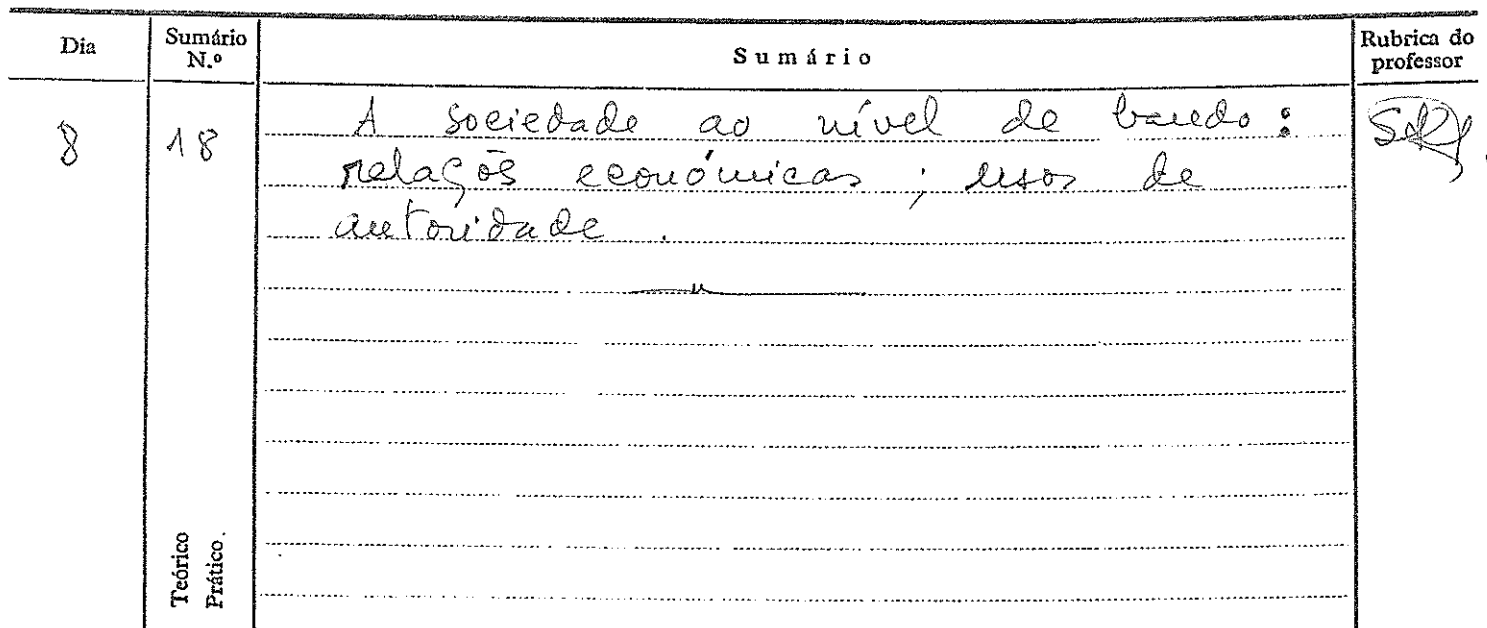 Dia
Sumário
N.º
Sumário
Rubrica do
professor
8
18
A sociedade ao nível de bando :
relaçõs económicas ; usos de
autoridade .
Teórico
Prático.